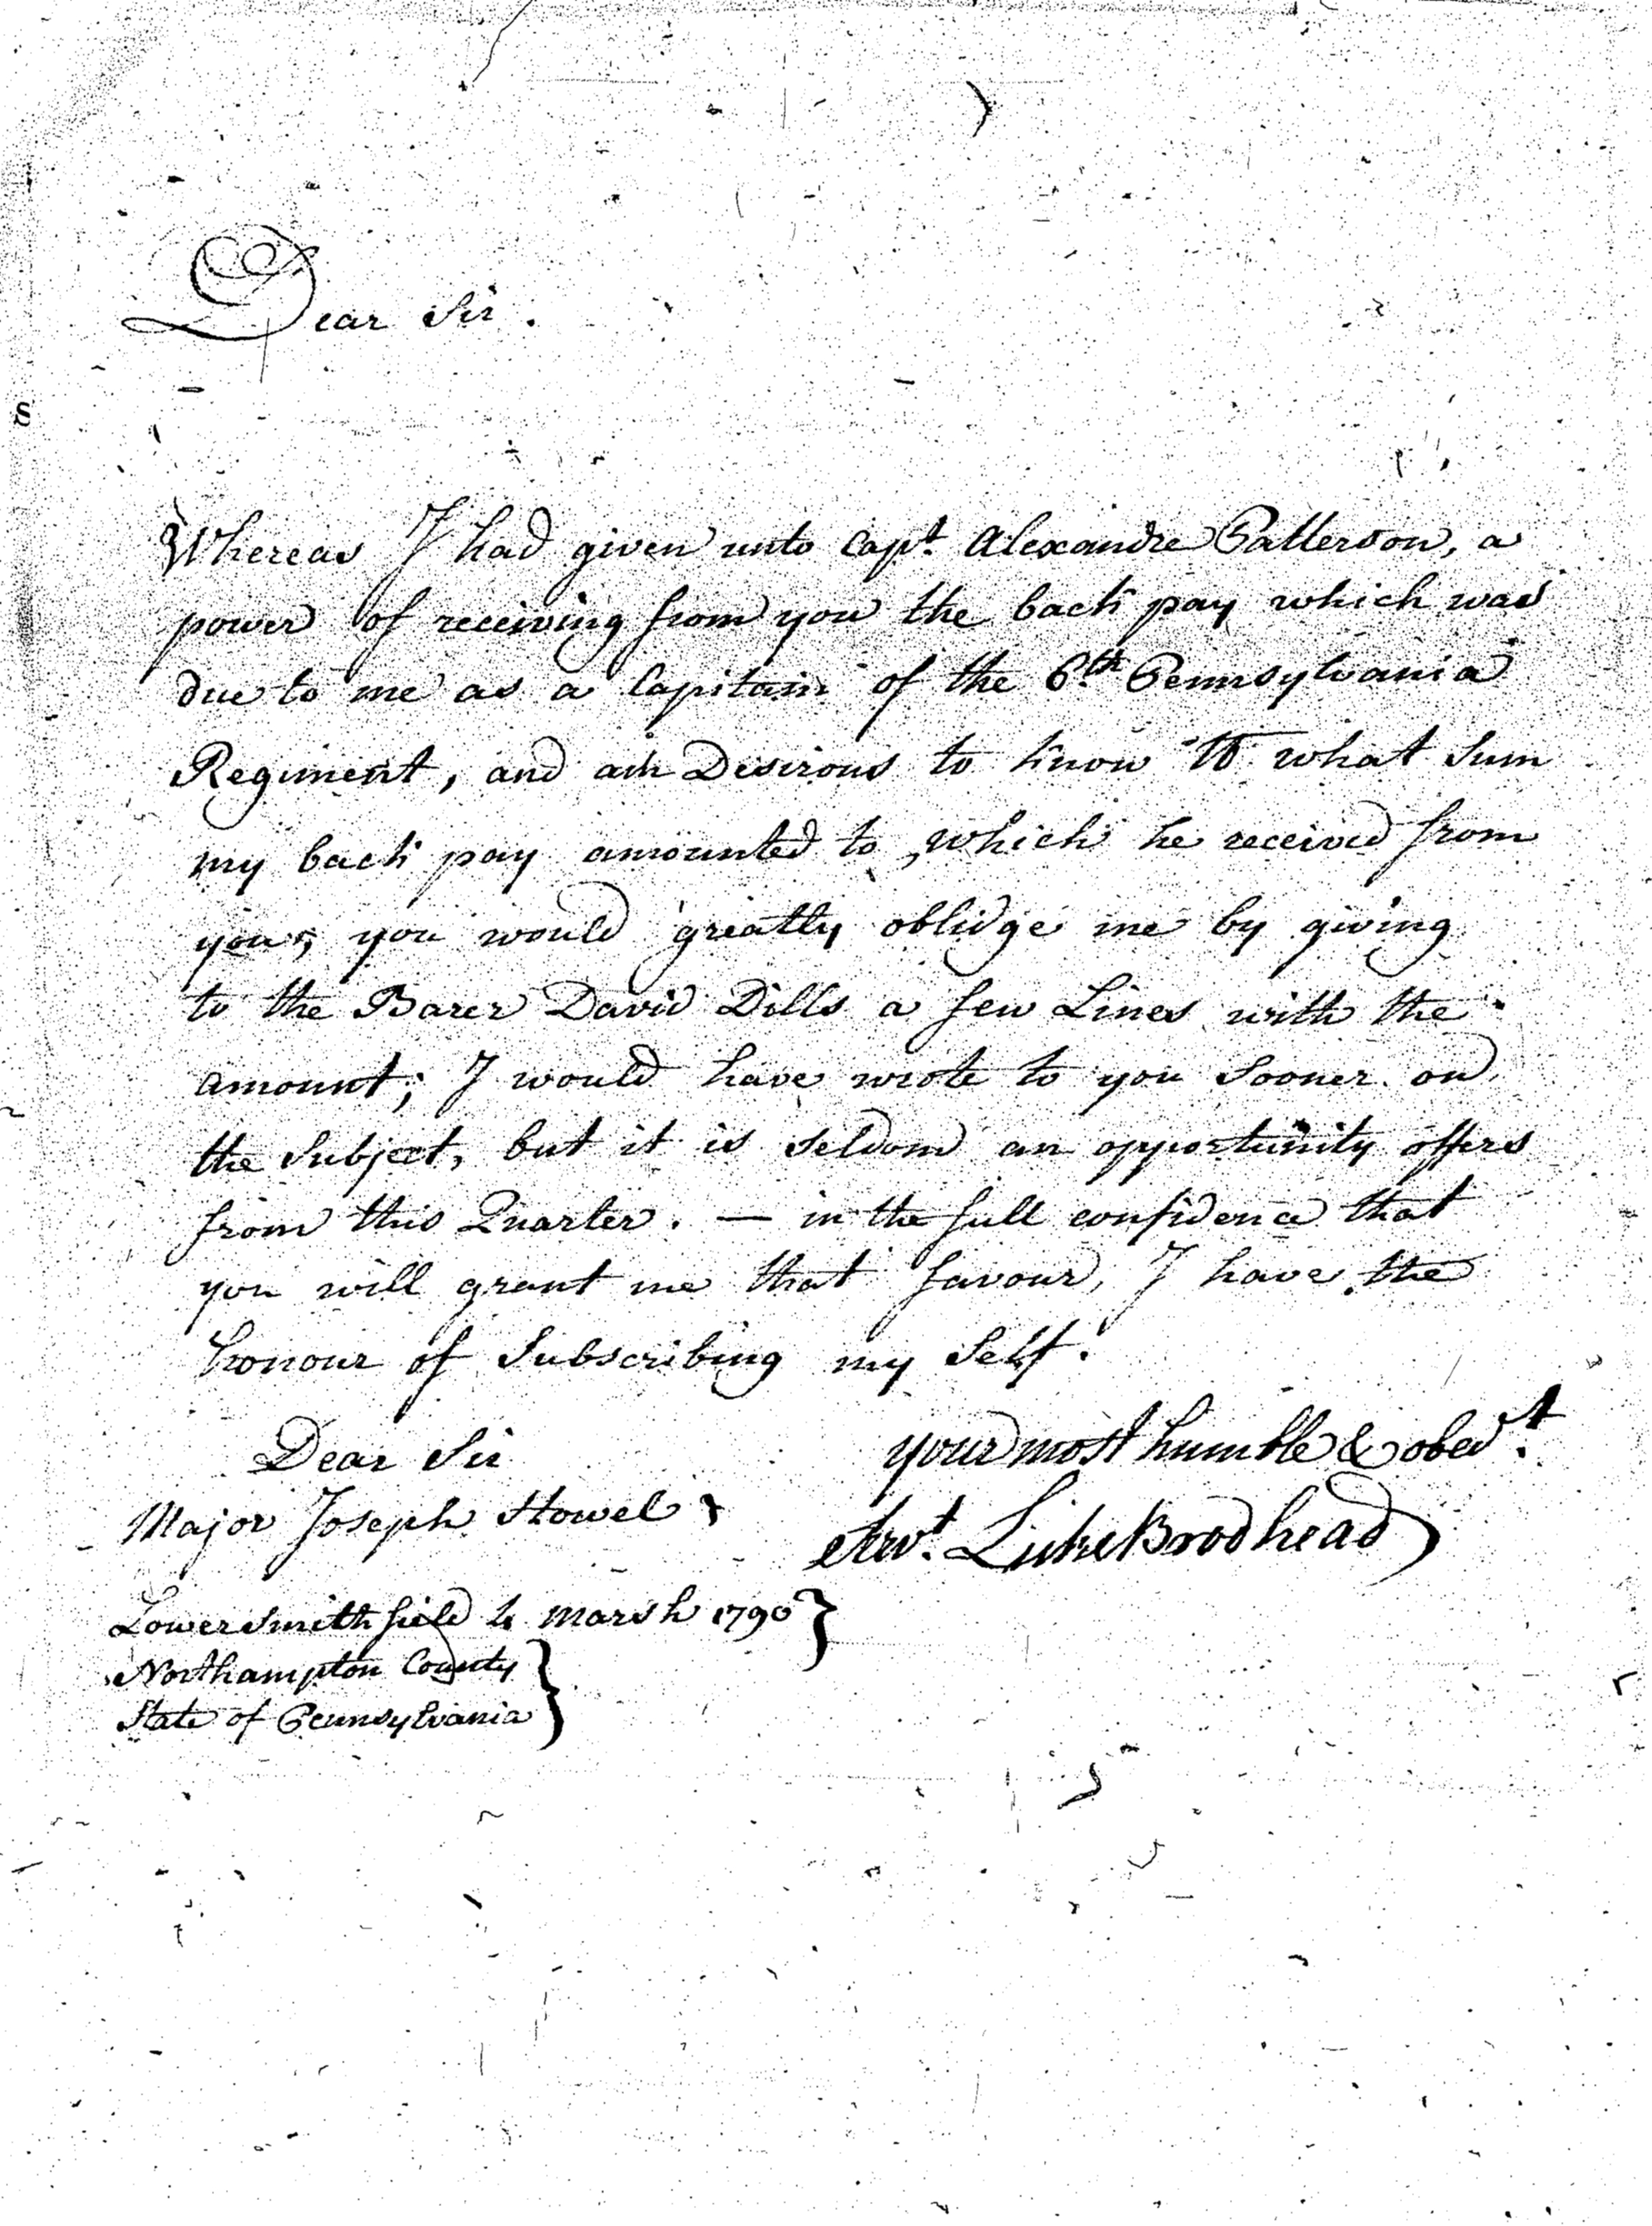 Dear Sir.
Whereas I had given unto Capt. Alexandre Patterson, a
power of receiving from you the back pay which was
due to me as a Capitain of the 6th Pennsylvania
Regiment, and am Desirous to know to what Sum
my back pay amounted to, which he received from
you, you would greatly oblidge me by giving
to the Barer David Dills a few Lines with the
amount; I would have wrote to you Sooner on
the Subject, but it is Seldom an opportunity offers
from this Quarter. — in the full confidence that
you will grant me that favour, I have the
honour of Subscribing my Self.
Dear Sir
your most humble & obedt.
Major Joseph Howel
Servt. Luke Brodhead
Lower Smithfield 4 Marsh 1790
Northampton County
State of Pennsylvania